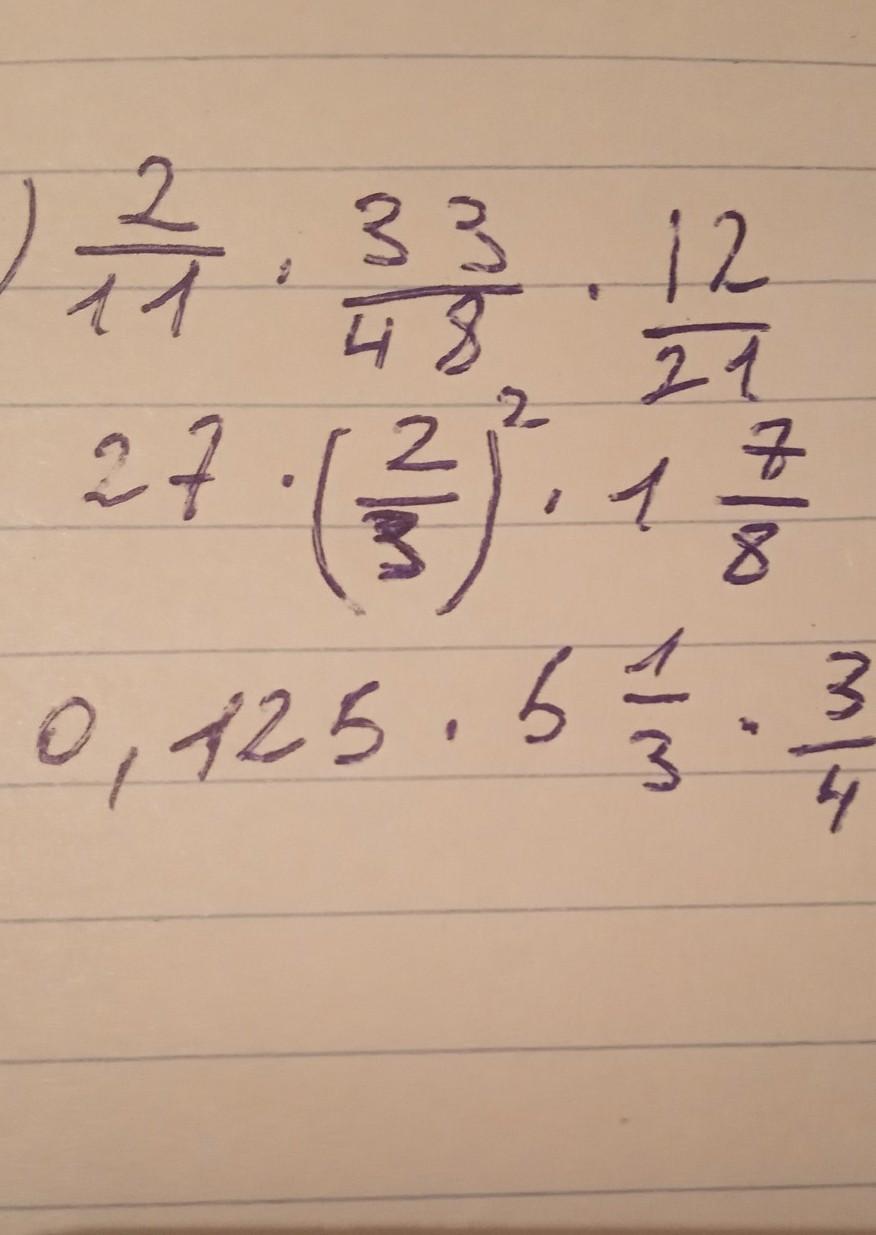 ) 2/11 · 33/48 · 12/21
27 · (2/3)² · 1 7/8
0,125 · 5 1/3 · 3/4